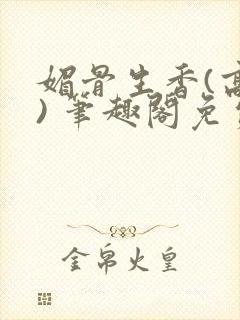 媚骨生香(高
)笔趣阁免
金帛火皇